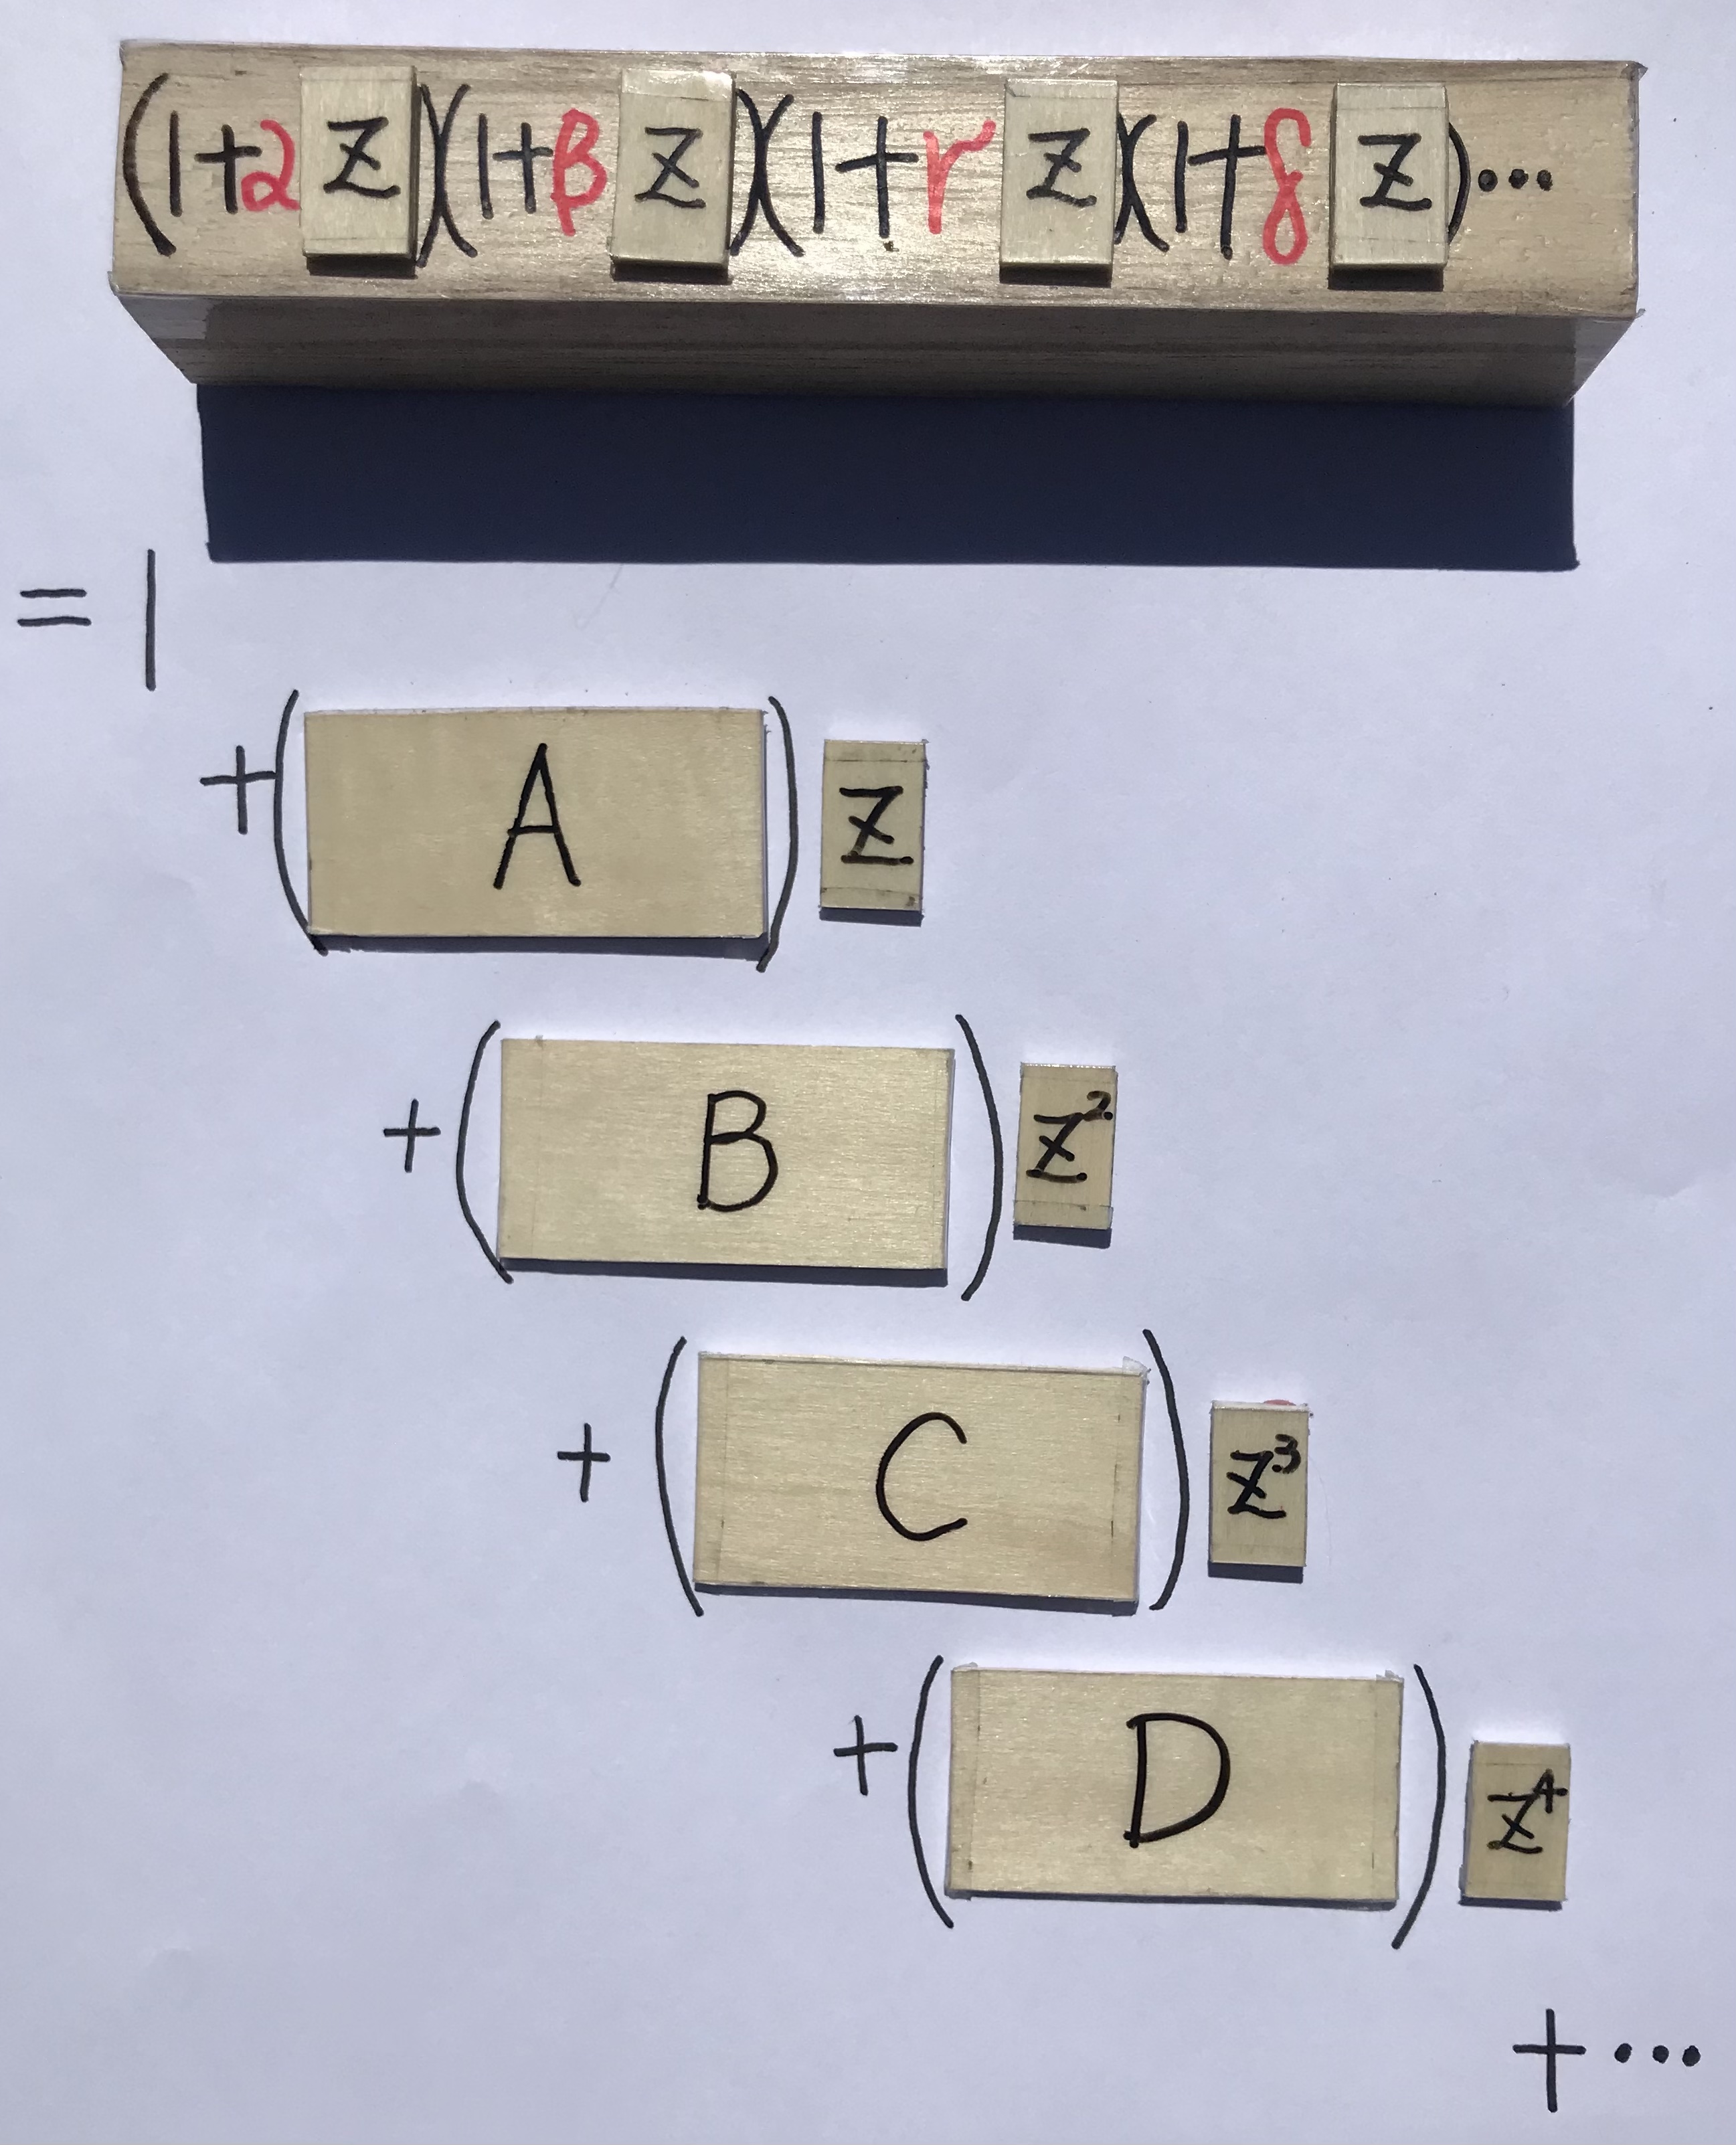 (1+αz)(1+βz)(1+γz)(1+δz)…
=1
+(A)z
+(B)z²
+(C)z³
+(D)z⁴
+…